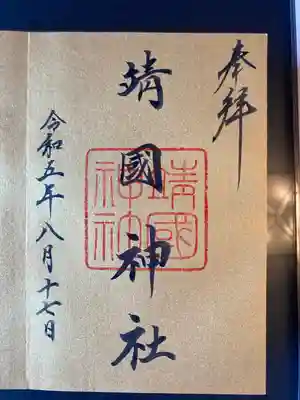 奉拝
靖國神社
靖國
神社
令和五年八月十七日